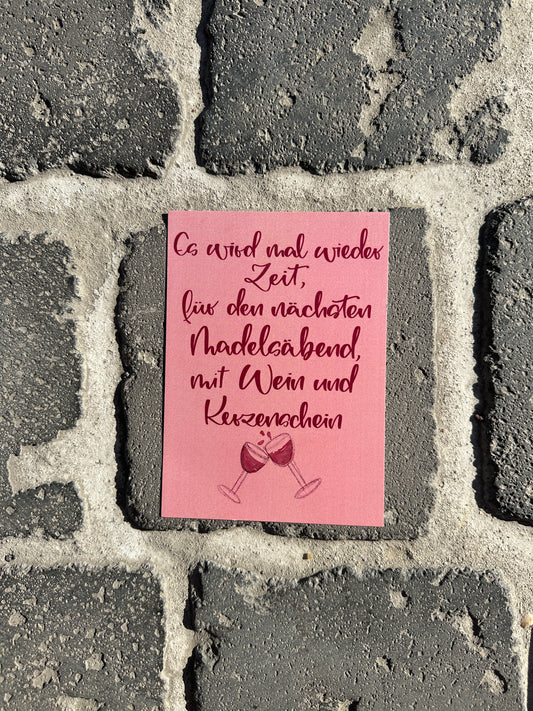 Es wird mal wieder
Zeit,
für den nächsten
Madelsäbend,
mit Wein und
Kerzenschein